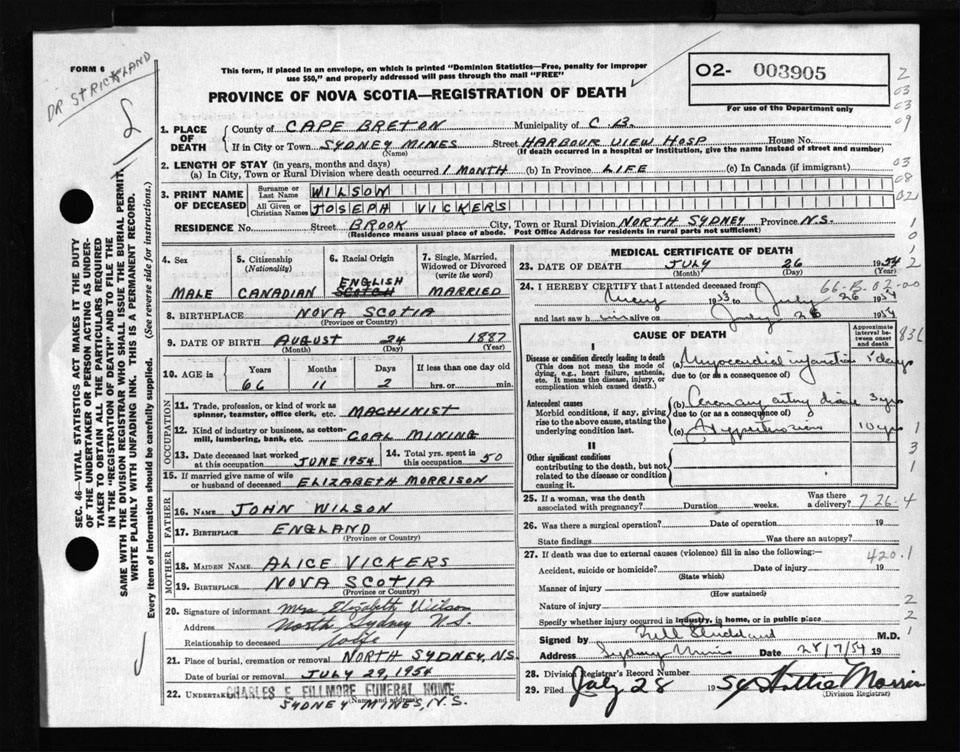 FORM 6
DR STRICKLAND
This form, if placed in an envelope, on which is printed "Dominion Statistics—Free, penalty for improper
use $50," and properly addressed will pass through the mail "FREE"
PROVINCE OF NOVA SCOTIA—REGISTRATION OF DEATH
02- 003905
For use of the Department only
2
03
03
09
03
08
02
1. PLACE OF DEATH
County of CAPE BRETON Municipality of C.B.
If in City or Town SYDNEY MINES Street HARBOUR VIEW HOSP House No.
(Name) (If death occurred in a hospital or institution, give the name instead of street and number)
2. LENGTH OF STAY (in years, months and days)
(a) In City, Town or Rural Division where death occurred 1 MONTH (b) In Province LIFE (c) In Canada (if immigrant)
3. PRINT NAME OF DECEASED
Surname or Last Name WILSON
All Given or Christian Names JOSEPH VICKERS
RESIDENCE No. Street BROOK City, Town or Rural Division NORTH SYDNEY Province N.S.
(Residence means usual place of abode. Post Office Address for residents in rural parts not sufficient)
SEC. 46—VITAL STATISTICS ACT MAKES IT THE DUTY
OF THE UNDERTAKER OR PERSON ACTING AS UNDER-
TAKER TO OBTAIN ALL THE PARTICULARS REQUIRED
IN THE "REGISTRATION OF DEATH" AND TO FILE THE
SAME WITH THE DIVISION REGISTRAR WHO SHALL ISSUE THE BURIAL PERMIT.
WRITE PLAINLY WITH UNFADING INK. THIS IS A PERMANENT RECORD.
Every item of information should be carefully supplied. (See reverse side for instructions.)
4. Sex
MALE
5. Citizenship
(Nationality)
CANADIAN
6. Racial Origin
ENGLISH
SCOTCH
7. Single, Married,
Widowed or Divorced
(write the word)
MARRIED
8. BIRTHPLACE NOVA SCOTIA
(Province or Country)
9. DATE OF BIRTH AUGUST 24 1887
(Month) (Day) (Year)
10. AGE in
Years Months Days If less than one day old
66 11 2 hrs. or min.
OCCUPATION
11. Trade, profession, or kind of work as
spinner, teamster, office clerk, etc. MACHINIST
12. Kind of industry or business, as cotton-
mill, lumbering, bank, etc. COAL MINING
13. Date deceased last worked
at this occupation JUNE 1954
14. Total yrs. spent in
this occupation 50
15. If married give name of wife
or husband of deceased ELIZABETH MORRISON
FATHER
16. NAME JOHN WILSON
17. BIRTHPLACE ENGLAND
(Province or Country)
MOTHER
18. MAIDEN NAME ALICE VICKERS
19. BIRTHPLACE NOVA SCOTIA
(Province or Country)
20. Signature of informant Mrs Elizabeth Wilson
Address North Sydney N.S.
Relationship to deceased Wife
21. Place of burial, cremation or removal NORTH SYDNEY, N.S.
Date of burial or removal JULY 29, 1954
22. UNDERTAKER CHARLES E. FILLMORE FUNERAL HOME
(Name and address)
SYDNEY MINES, N.S.
MEDICAL CERTIFICATE OF DEATH
23. DATE OF DEATH JULY 26 1954
(Month) (Day) (Year)
24. I HEREBY CERTIFY that I attended deceased from
May 1953 to July 26 1954
and last saw him alive on July 26 1954
CAUSE OF DEATH
Approximate
interval be-
tween onset
and death
I
Disease or condition directly leading to death
(This does not mean the mode of
dying, e.g., heart failure, asthenia,
etc. It means the disease, injury, or
complication which caused death.)
(a) Myocardial infarction days
due to (or as a consequence of)
Antecedent causes
Morbid conditions, if any, giving
rise to the above cause, stating the
underlying condition last.
(b) Coronary artery disease 3 yrs
due to (or as a consequence of)
(c) Hypertension 10 yrs
II
Other significant conditions
contributing to the death, but not
related to the disease or condition
causing it.
25. If a woman, was the death
associated with pregnancy? Duration weeks. Was there
a delivery? 7-26-4
26. Was there a surgical operation? Date of operation 19
State findings Was there an autopsy?
27. If death was due to external causes (violence) fill in also the following:— 420.1
Accident, suicide or homicide? Date of injury 19
(State which)
Manner of injury
(How sustained)
Nature of injury
Specify whether injury occurred in industry, in home, or in public place
Signed by M.D.
Address Sydney Mines Date 28/7/54 19
28. Division Registrar's Record Number
29. Filed July 28 1954 Hattie Morris
(Division Registrar)